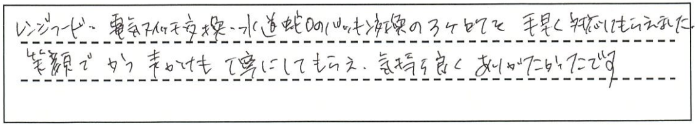 レンジフード・電気スイッチ交換・水道蛇口のパッキン交換の3ヶ所を 手早く対応してもらえました。
笑顔で かつ 声かけも 丁寧にしてもらえ、気持ち良く ありがたかったです